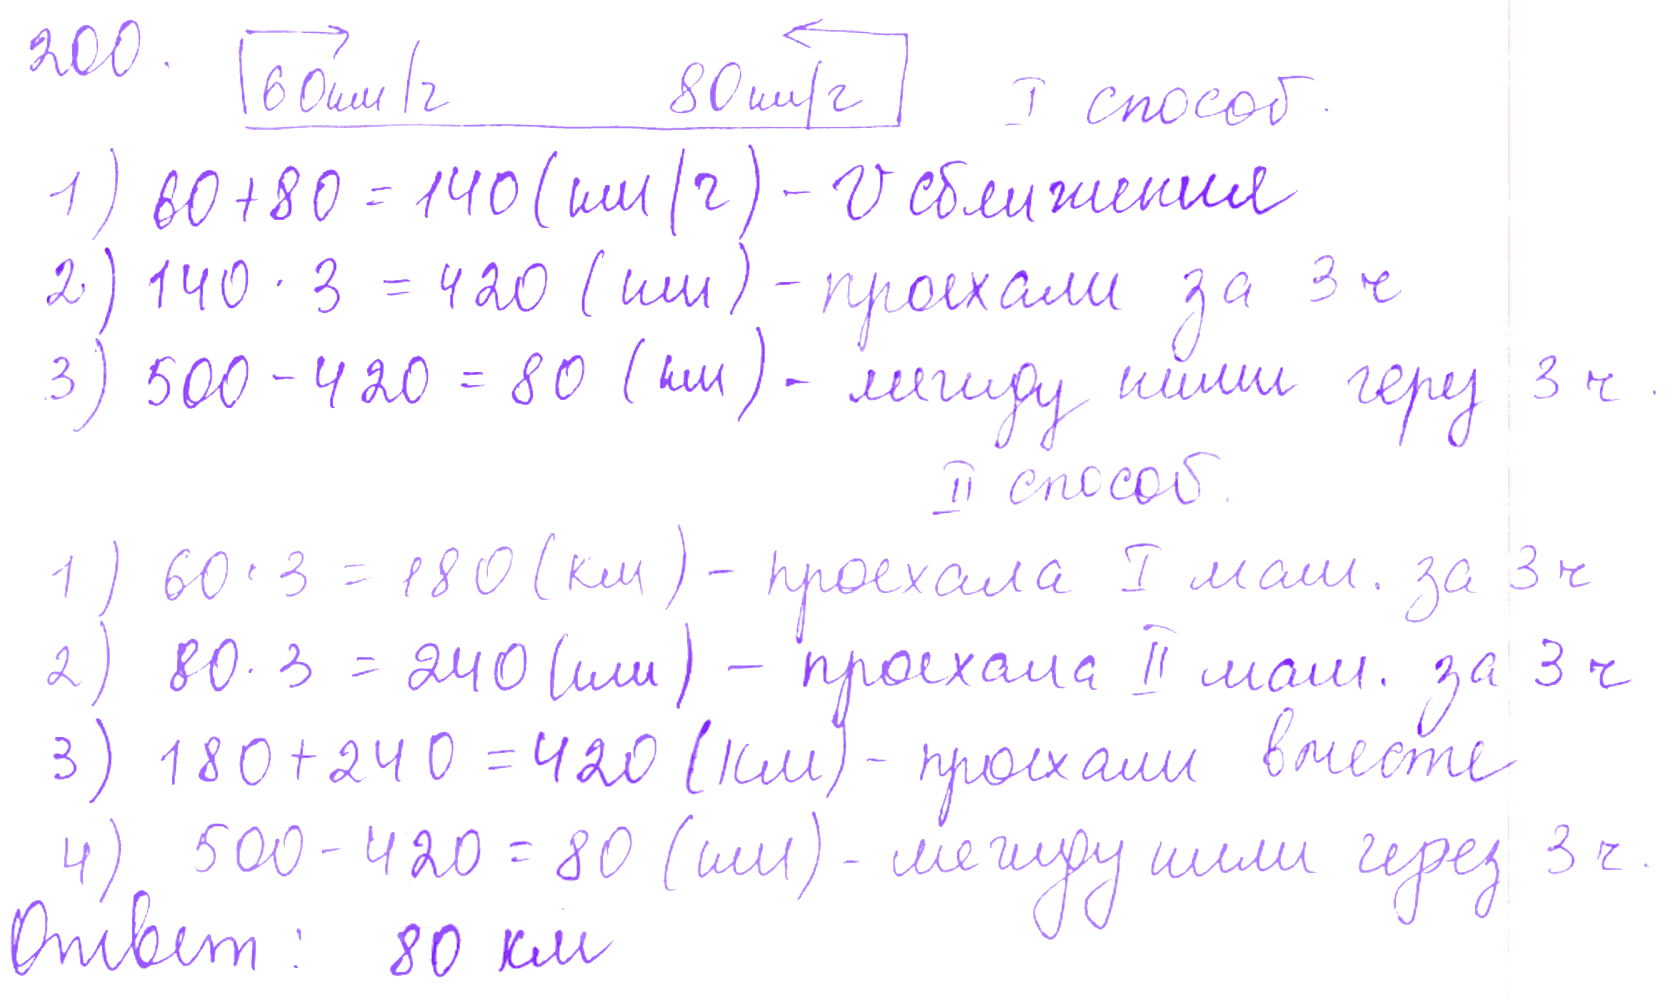 200.
60 км/ч 80 км/ч I способ.
1) 60 + 80 = 140 (км/ч) - V сближения
2) 140 · 3 = 420 (км) - проехали за 3 ч
3) 500 - 420 = 80 (км) - между ними через 3 ч.
II способ.
1) 60 · 3 = 180 (км) - проехала I маш. за 3 ч
2) 80 · 3 = 240 (км) - проехала II маш. за 3 ч
3) 180 + 240 = 420 (км) - проехали вместе
4) 500 - 420 = 80 (км) - между ними через 3 ч.
Ответ: 80 км